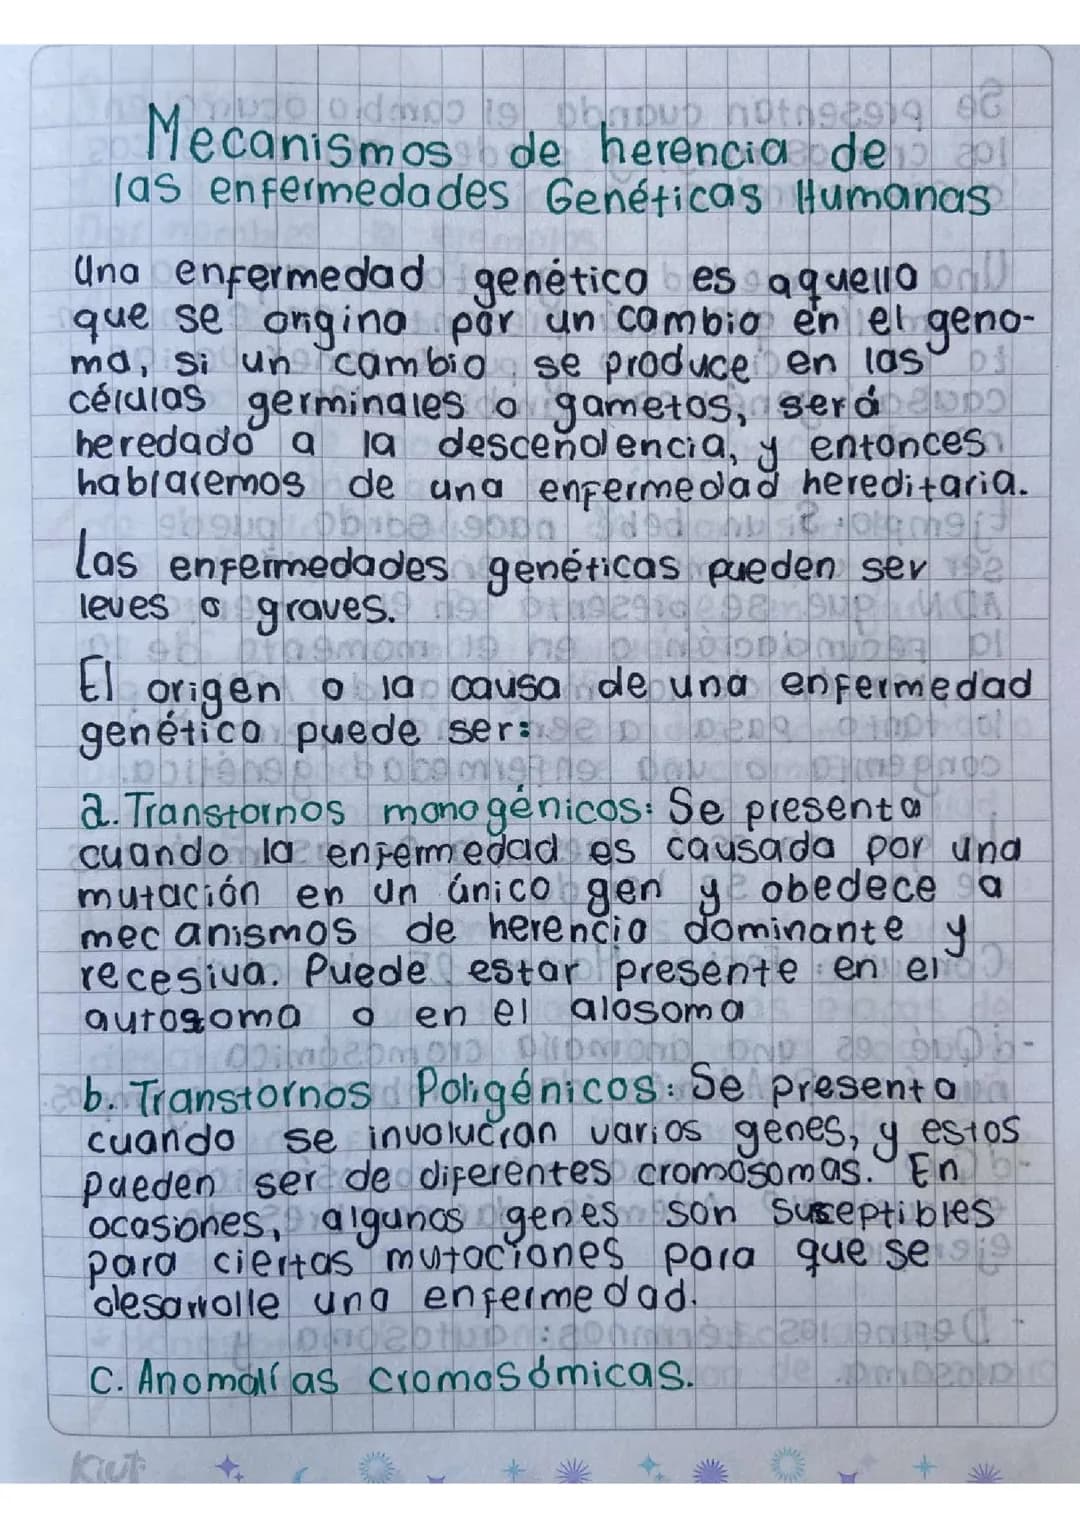 Mecanismos de herencia de
las enfermedades Genéticas Humanas
Una enfermedad genético es aquello
que se origina por un cambio en el geno-
ma, si un cambio se produce en las
células germinales o gametos, será
heredado a la descendencia, y entonces
hablaremos de una enfermedad hereditaria.
Las enfermedades genéticas pueden ser
leves o graves.
El origen o la causa de una enfermedad
genético puede ser:
a. Transtornos monogénicos: Se presenta
cuando la enfermedad es causada por una
mutación en un único gen y obedece a
mecanismos de herencia dominante y
recesiva. Puede estar presente en el
autosoma o en el alosoma
b. Transtornos Poligénicos: Se presenta
cuando se involucran varios genes, y estos
pueden ser de diferentes cromosomas. En
ocasiones, algunos genes son susceptibles
para ciertas mutaciones para que se
desarrolle una enfermedad.
c. Anomalías cromosómicas.
Kiut